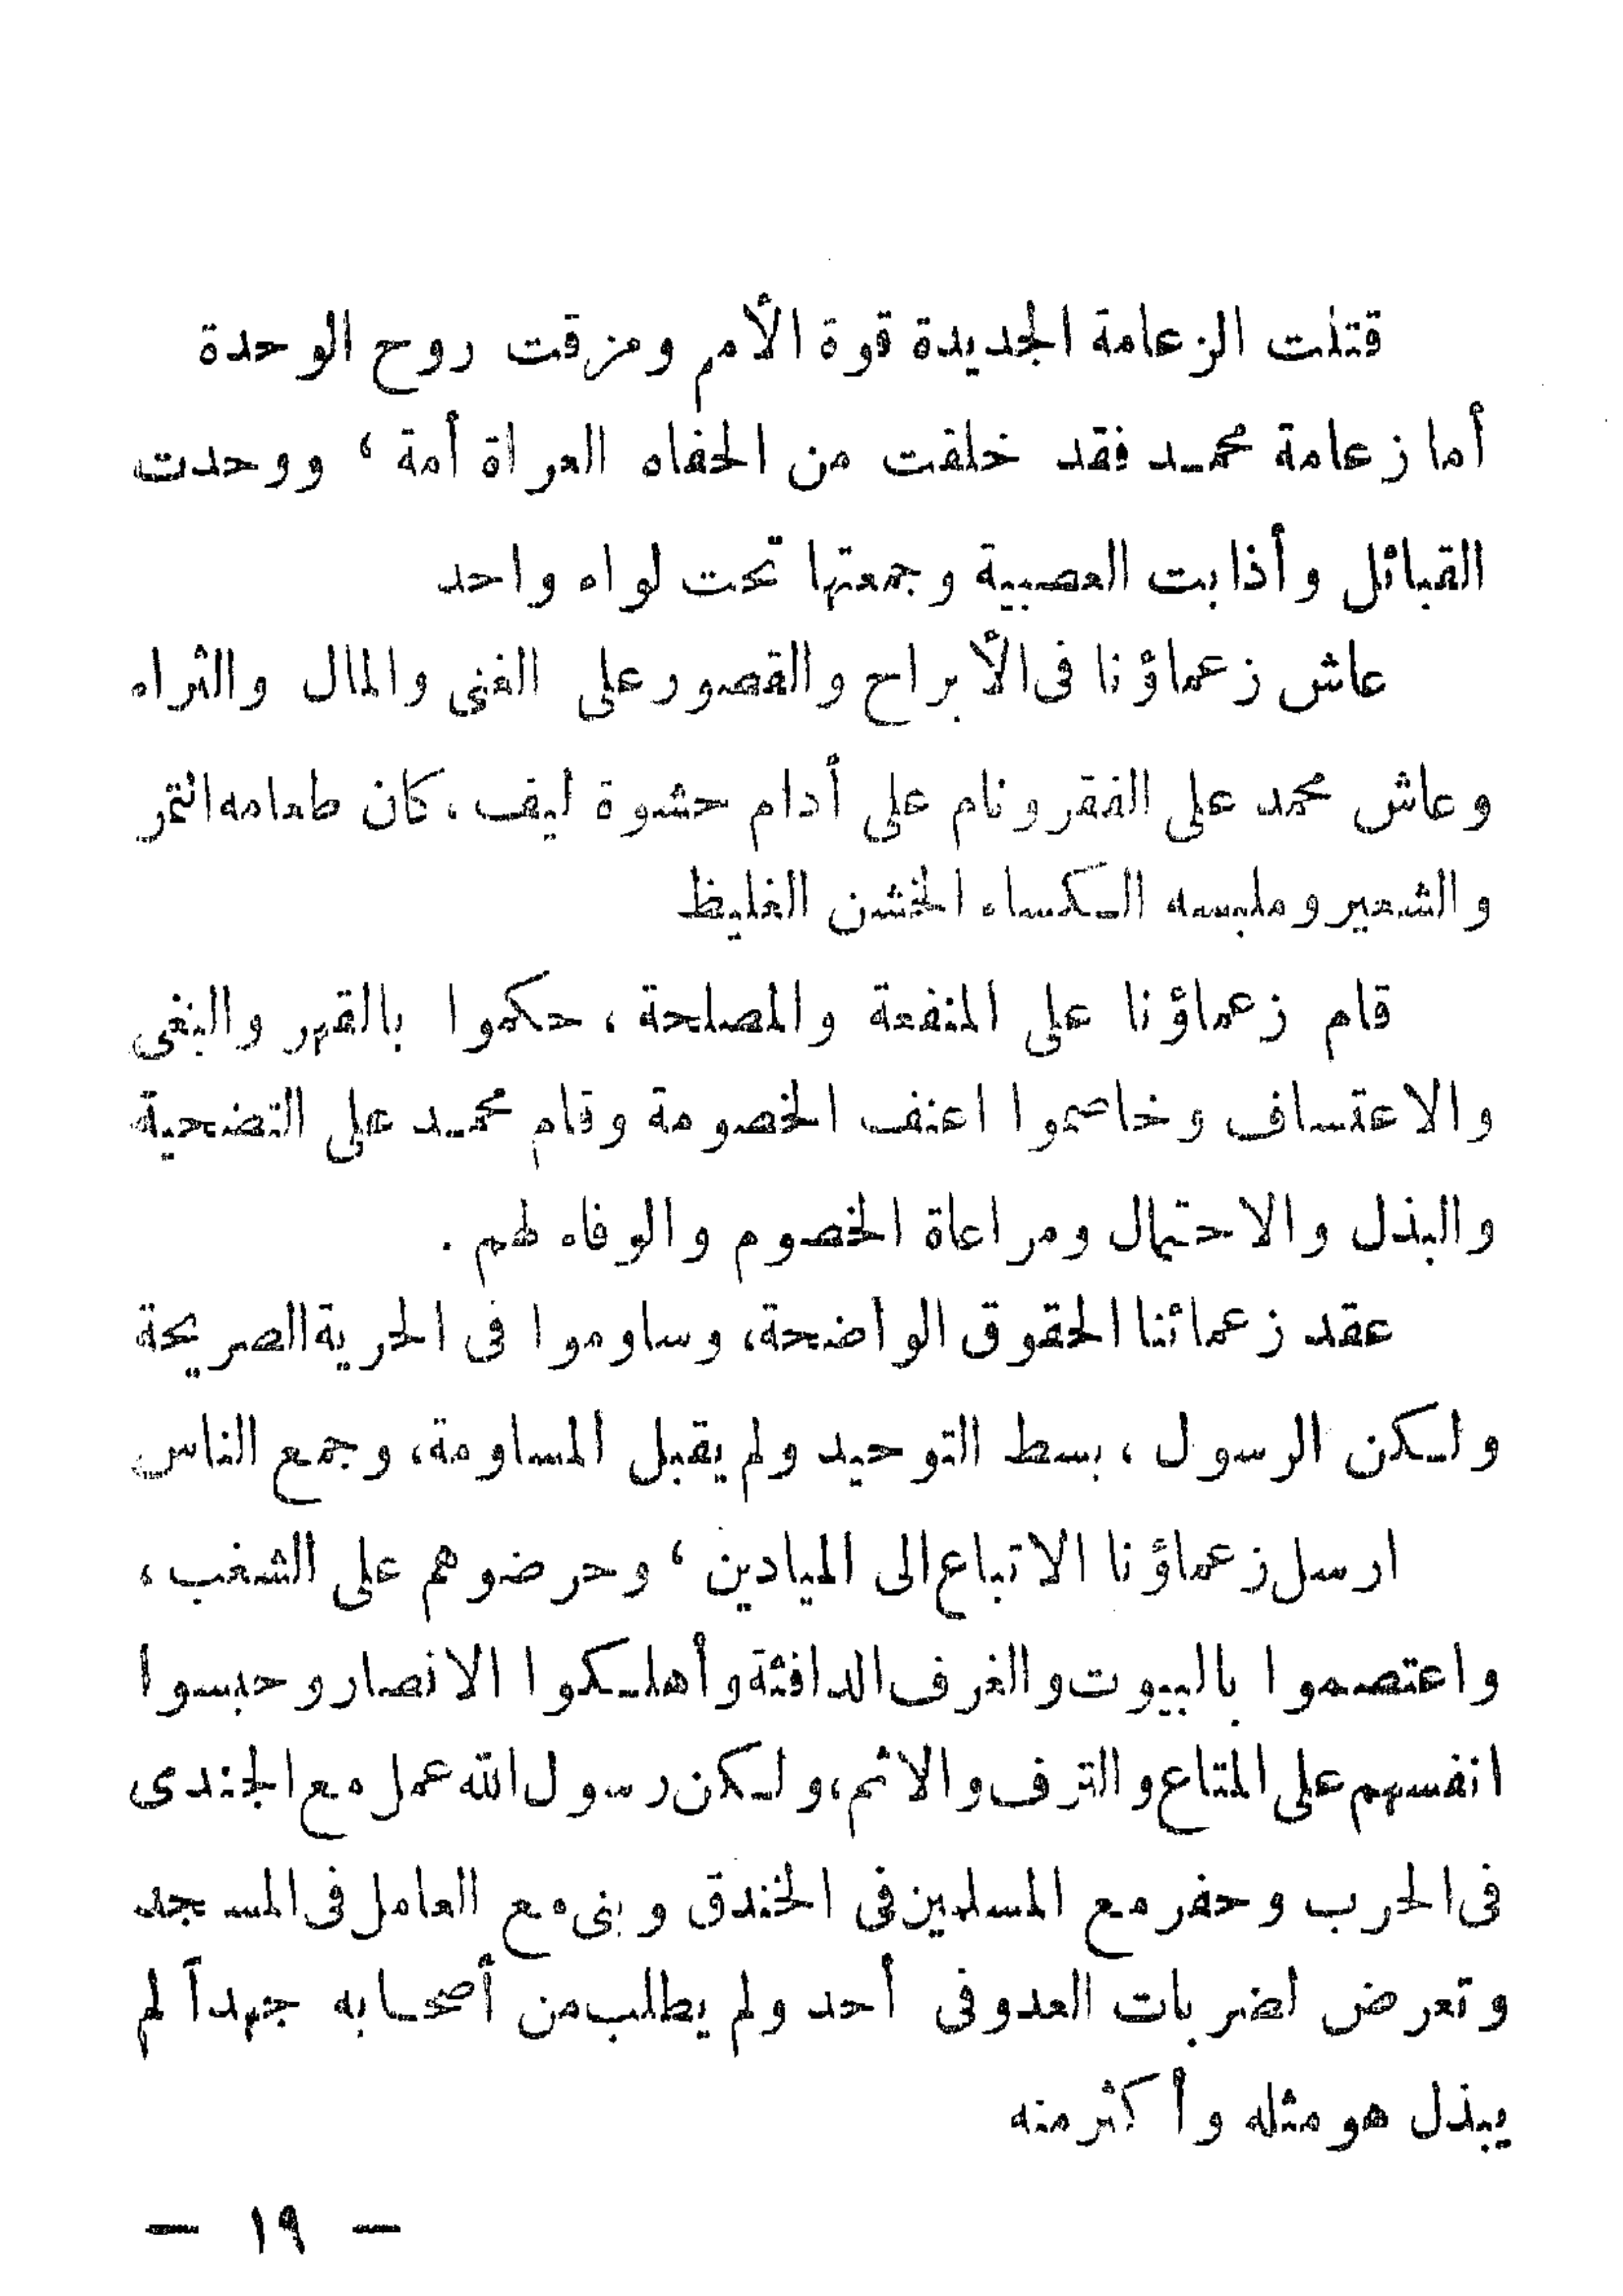 قتلت الزعامة الجديدة قوة الأمم ومزقت روح الوحدة
أما زعامة محمد فقد خلقت من الحفاه العراة أمة ، ووحدت
القبائل وأذابت العصبية وجمعتها تحت لواء واحد
عاش زعماؤنا فى الأبراج والقصور على الغنى والمال والثراء
وعاش محمد على الفقر ونام على أدام حشوة ليف ، كان طعامه التمر
والشعير وملبسه الكساء الخشن الغليظ
قام زعماؤنا على المنفعة والمصلحة ، حكموا بالقهر والبغى
والاعتساف وخاصموا اعنف الخصومة وقام محمد على التضحية
والبذل والاحتمال ومراعاة الخصوم والوفاء لهم .
عقد زعمائنا الحقوق الواضحة، وساوموا فى الحرية الصريحة
ولكن الرسول ، بسط التوحيد ولم يقبل المساومة، وجمع الناس
ارسل زعماؤنا الاتباع الى الميادين ، وحرضوهم على الشغب ،
واعتصموا بالبيوت والغرف الدافئة وأهلكوا الانصار وحبسوا
انفسهم على المتاع والترف والاثم، ولكن رسول الله عمل مع الجندى
فى الحرب وحفر مع المسلمين فى الخندق وبنى مع العامل فى المسجد
وتعرض لضربات العدو فى أحد ولم يطلب من أصحابه جهداً لم
يبذل هو مثله وأكثر منه
— ١٩ —